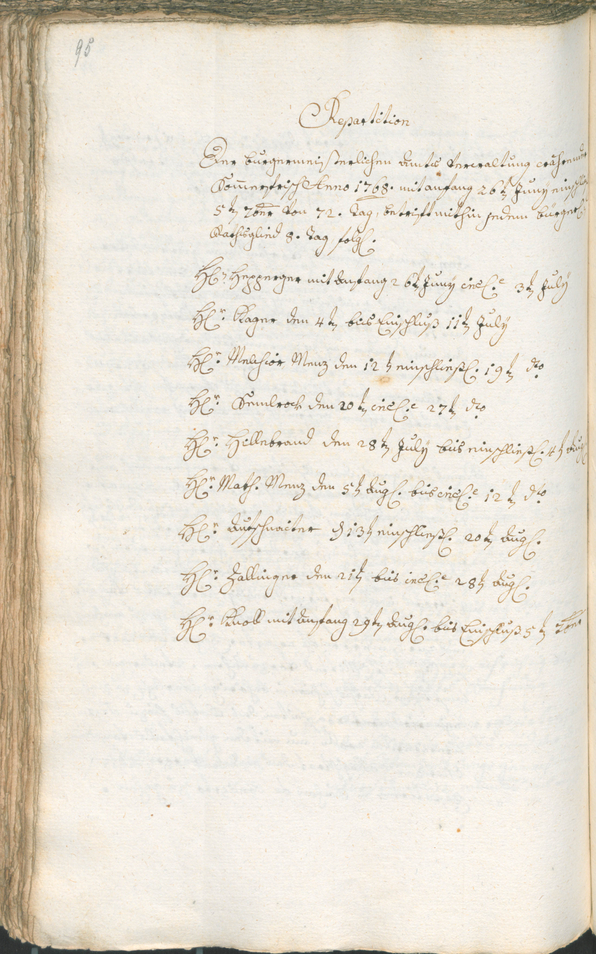 95
Repartition
Der burgermeisterlichen Ambts Verwaltung
Sommerfrisch Anno 1768. mit anfang 26t Juny
5t 7ber von 72. Tag, betrift mithin jedem burgerl.
Rathsglied 8. Tag, folgl.
H: Hepperger mit Anfang 26t Juny incl. 3t July
H: Kager den 4t bis Einschluß 11t July
H: Melchior Menz den 12t einschliesl. 19t dto
H: den 20t incl. 27t dto
H: Hillebrand den 28t July bis einschliesl. 4t Aug
H: Math. Menz den 5t Aug. bis incl. 12t dto
H: Aufschnaiter 13t einschliesl. 20t Aug.
H: Zallinger den 21t bis incl. 28t Aug.
H: Knoll mit Anfang 29t Aug. bis Einschluß 5t 7ber